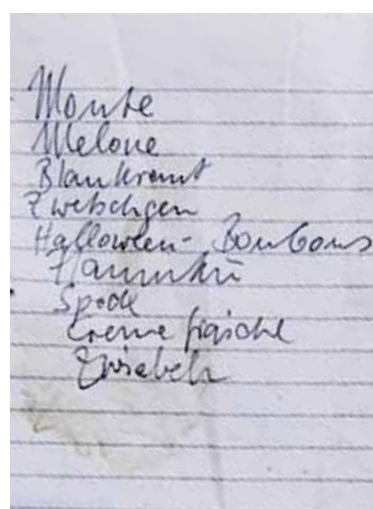 Monte
Melone
Blaukraut
Zwetschgen
Halloween- Bonbons
Speck
Creme fraiche
Zwiebeln